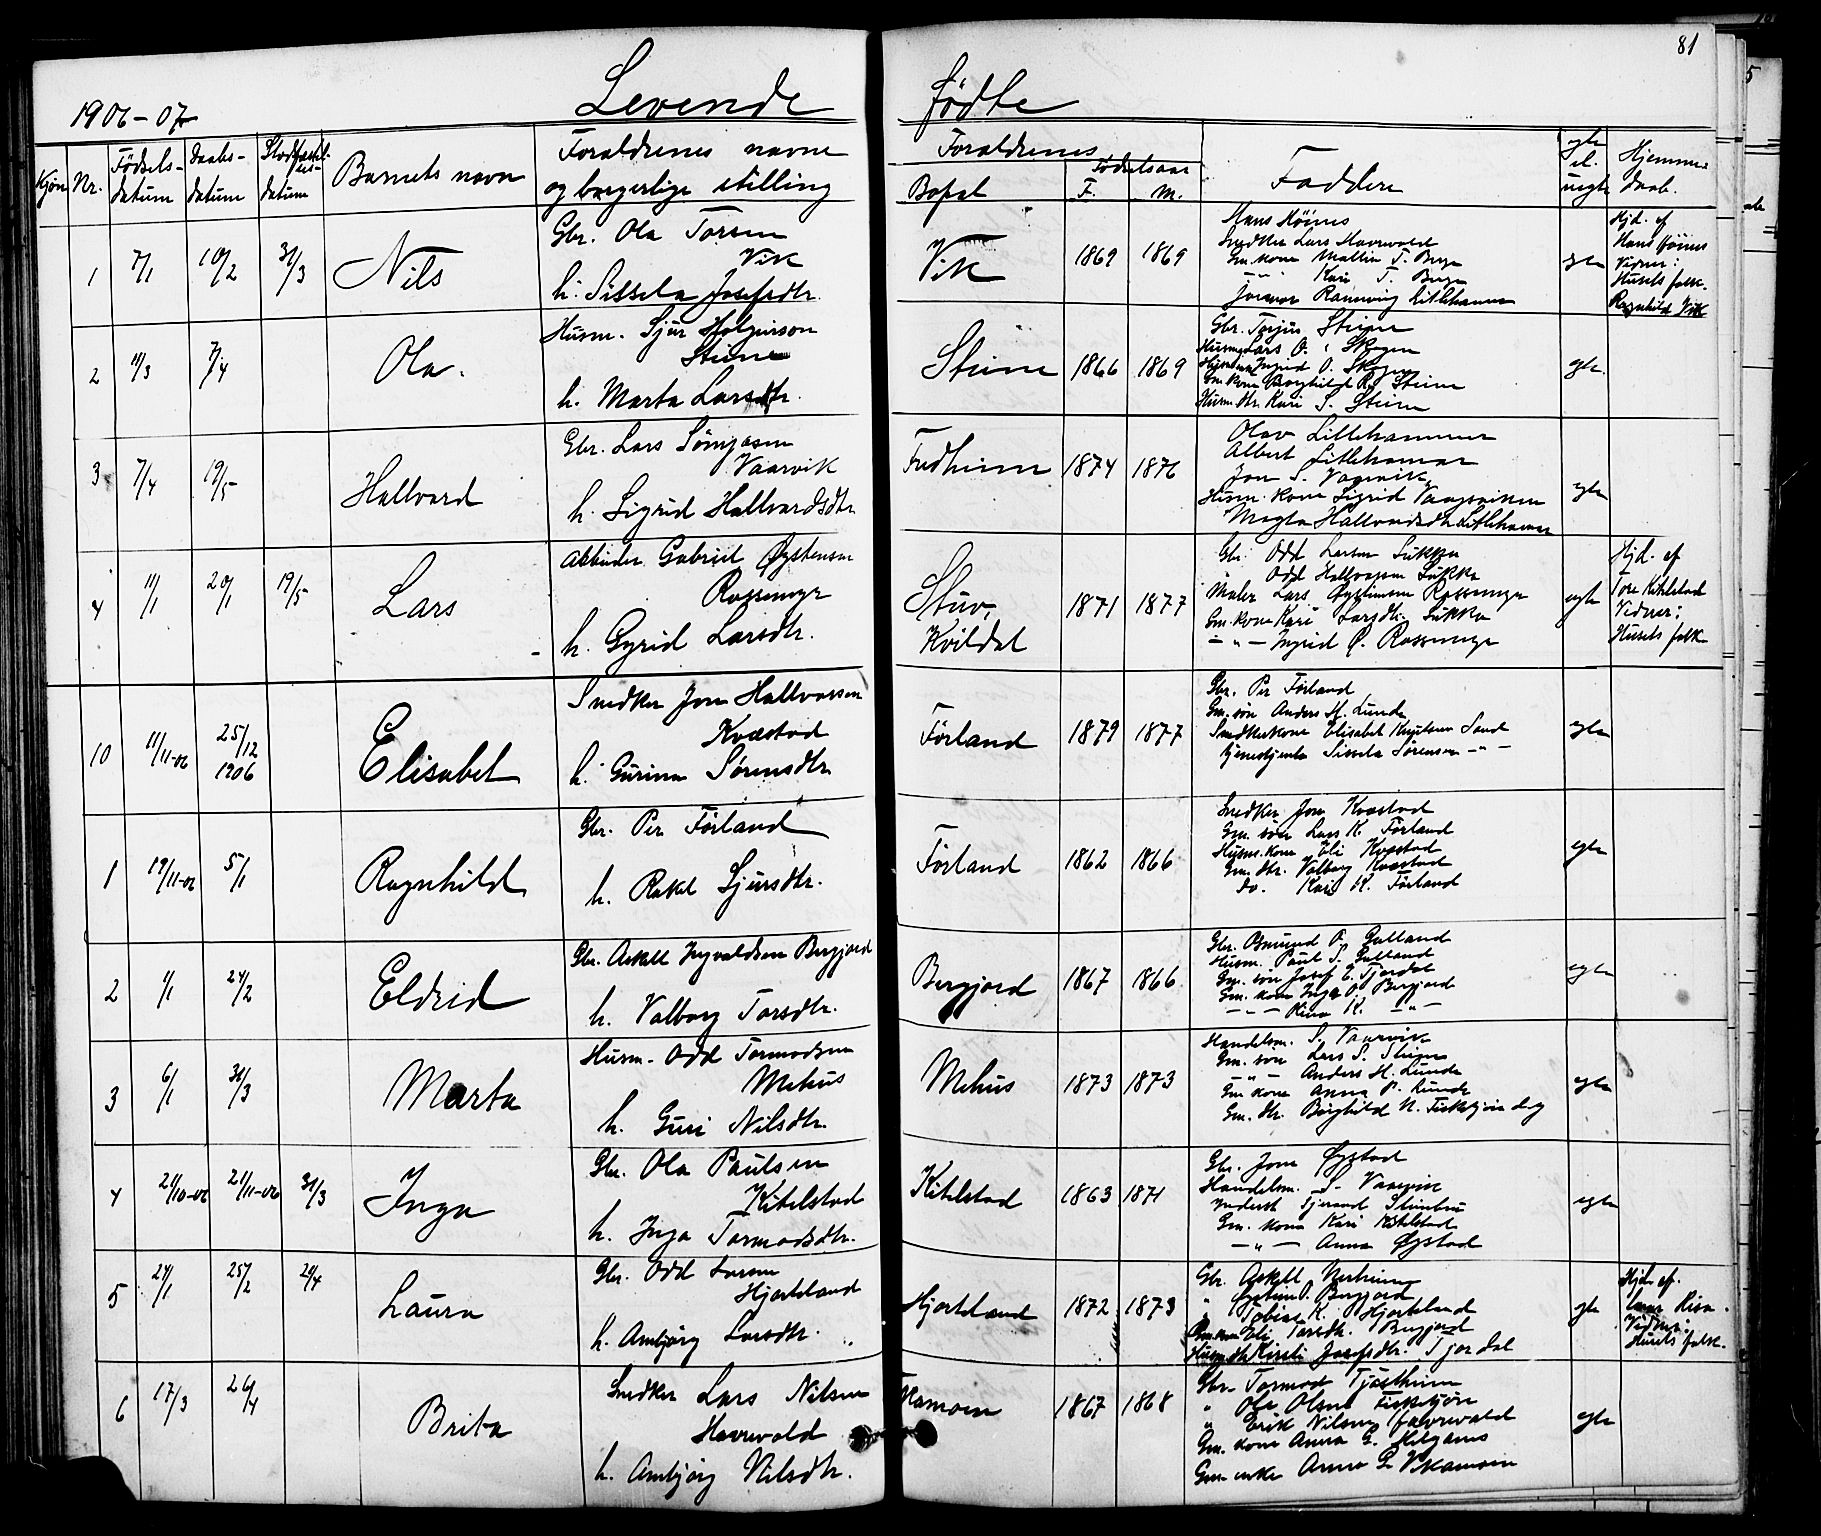 81
1906-07
Levende fødte
Kjøn
Nr.
Fødsels-datum
Daabs-datum
Stadfæstelses-datum
Barnets navn
Foraldrenes navne og borgerlige stilling
Foraldrenes
Bopæl
Fødselsaar
F.
M.
Faddere
egte el. uegte
Hjemmedaab.
1 7/1 10/2 31/3 Nils
Gbr. Ola Torsen
Vik
h. Sissela Josefsdtr.
Vik 1869 1869
Hans Høines
Snedker Lars Havrevold
Gm. kone Mallin T. Berge
— " — Kari T. Berge
Rannveig Litlehamar
egte
Hjd. af
Hans Høines
Vidner:
Husets folk.
Ragnhild Vik
2 11/3 7/4 Ola.
Husm. Sjur Holgerson
Steine
h. Marta Larsdtr.
Steine 1866 1869
Gbr. Torjus Steine
Husm. Lars O. Skogen
Ingrid O. Skogen
Gm. kone Borghild R. Steine
Husm. dtr. Kari S. Steine
egte.
3 7/4 19/5 Hallvard
Gbr. Lars
Vaarvik
h. Sigrid Hallvardsdtr.
1874 1876
Olav Littlehammer
Albert Litlehamar
Jon S. Vaarvik
Husm. kone Sigrid
Magla Hallvardsdtr. Litlehamar
egte
4 11/1 20/1 19/5 Lars
Gabriel Øystensen
Rossemyr
h. Gyrid Larsdtr.
Stuv,
Kvildal
1871 1877
Gbr. Odd Larsen Lukka
Odd Hallvarsen Lukka
Maler Lars Øystensen Rossemyr
Gm. kone Kari Larsdtr. Lukka
— " — Ingrid Ø. Rossemyr
egte
Hjd. af
Tore Kitelstad
Vidner:
Husets folk
10 11/11-06 25/12 1906 Elisabet
Snedker Jon Hallvarsen
Kvæstad
h. Gurina Sørensdtr.
Førland 1879 1877
Gbr. Per Førland
Gm. søn Anders H. Lunde
Snedkerkone Elisabet Knutsen Sand
tjenestjente Sissela Sørensen — " —
egte
1 19/11-06 5/1 Ragnhild
Gbr. Per Førland
h. Rakel Sjursdtr.
Førland 1862 1866
Snedker Jon Kvæstad
Gm. søn Lars K. Førland
Husm. kone Eli Kvæstad
Gm. dtr. Valborg Kvæstad
do. Kari K. Førland
egte
2 1/1 24/2 Eldrid
Gbr. Askell Ingvaldsen Bergjord
h. Valborg Torsdtr.
Bergjord 1867 1866
Gbr. Osmund O. Gulland
Husm. Paul S. Gulland
Gm. søn Josef E. Tjordal
Gm. kone Inga O. Bergjord
— " — Rina K. — " —
egte
3 6/1 31/3 Marta
Husm. Odd Tormodsen
Mehus
h. Guri Nilsdtr.
Mehus 1873 1873
Handelsm. S. Vaarvik
Gm. søn Lars S. Steine
— " — Anders H. Lunde
Gm. kone Anna P. Lunde
Gm. dtr. Borghild N. Fiskekjøn
egte
4 21/10-06 21/11-06 31/3 Inga
Gbr. Ola Paulsen
Kitelstad
h. Inga Tormodsdtr.
Kitelstad 1863 1871
Gbr. Jon Øystad
Handelsm. S. Vaarvik
Inderst Tjerand
Gm. kone Kari Kitelstad
— " — Anna Øystad
egte
5 24/1 25/2 Laura
Gbr. Odd Larsen
Hjorteland
h. Ambjørg Larsdtr.
Hjorteland 1872 1873
Gbr. Askell
" Øystein O. Bergjord
" Tobias K. Hjorteland
Gm. kone Eli Larsdtr. Bergjord
Husm. dtr. Kirsti Josefsdtr. Tjordal
egte
Hjd. af.
Risa.
Vidner:
Husets folk.
6 17/3 Brita
Snedker Lars Nilsen
Havrevold
h. Ambjørg Nilsdtr.
1867 1868
Gbr. Tormod
" Ole Olsen Fiskekjøn
" Erik Nilsen Havrevold
Gm. kone Anna G. Helganes
Gm. enke Anna G. Vikamoen
egte